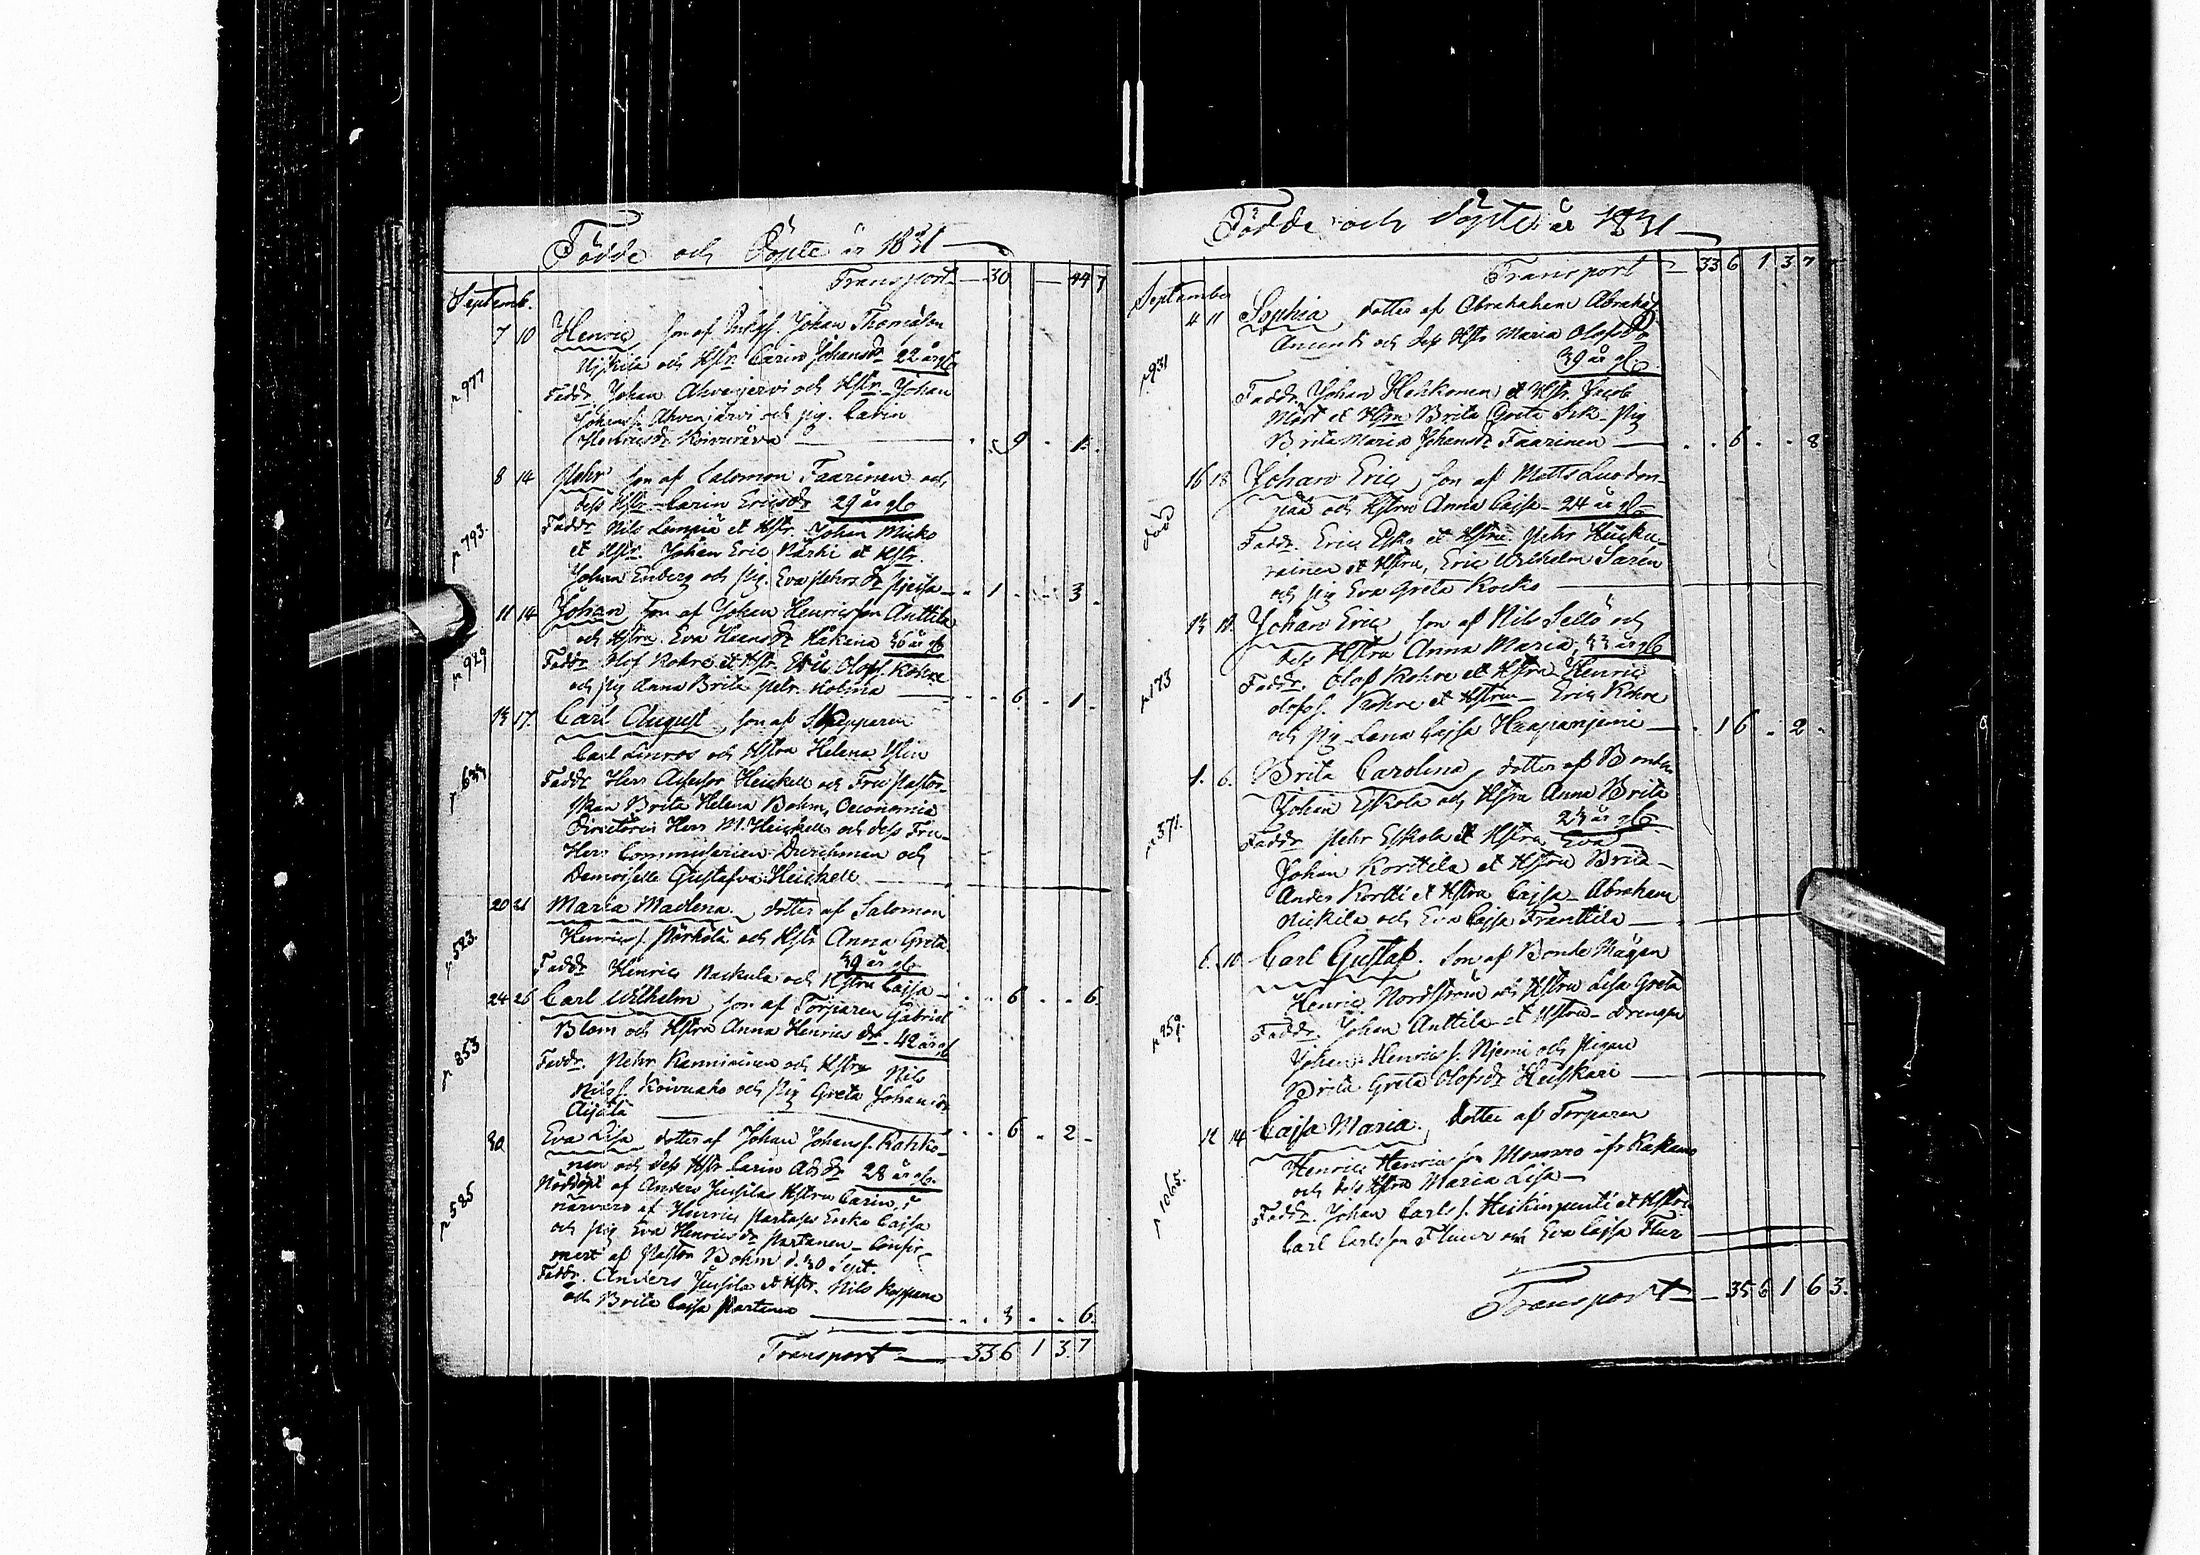 Födde och Döpte år 1831
Transport 30 44 7
Septemb.
7 10 Henric son af Johan Thomasson
och Hstr. Carin Johansdr 22 år gl
p 977 Faddr Johan Ahvenjervi och Hstr. Johan
Johans s. Ahvenjärvi och pig. Carin
Henricsdr Koivuräva 9 1
8 14 Pehr son af Salomon Faarinen och
dess Hstr Carin Ericsdr 29 år gl
p 793. Faddr Nils Lampia et Hstr. Johan Micko
et Hstr. Johan Eric Närhi et Hstr.
Johan Enberg och pig. Eva Pehrsdr 1 3
11 14 Johan son af Johan Henricsson Anttila
och Hstru Eva Hansdr Hakana 36 år gl
p 929 Faddr Olof Kohre et Hstr. Olofs. Kohre
och pig Anna Brita Pehr. Kolima 6 1
13 17. Carl August, son af
Carl Linros och Hstru Helena
p 633 Faddr Herr Assessor Heickell och Fru Pastor
skan Brita Helena Bohm, Oeconomie
Directören Herr M. Heickell och dess Fru
Herr Commissarien Dreschman och
Demoiselle Gustafva Heickell
20 21 Maria Madlena dotter af Salomon
Henrics s. Pörhölä och Hstr Anna Greta
39 år gl
p 523. Faddr Henric Naskula och Hstru Cajsa 6 6
24 26 Carl Wilhelm son af Torparen Gabriel
Blom och Hstru Anna Henrics dr 42 år gl
p 853 Faddr. Pehr Kanniainen och Hstru Nils
Nils s. Koivuaho och pig Greta Johansdr
Aijälä 6 2
30 Eva Lisa dotter af Johan Johans s. Kahko-
nen och dess Hstr Carin Ads dr 28 år gl.
p 585 Nöddöpt af Anders Jussilas Hstru Carin, i
närvaro af Henric Partases Enka Cajsa
och pig Eva Henricsdr Partanen Confir-
mert af Pastor Bohm d. 30 Sept.
Faddr. Anders Jussila et Hstr. Nils Kappana
och Brita Cajsa Partanen 3 6
Transport 33 6 1 3 7
Födde och Döpte år 1831
Transport 33 6 1 3 7
September
4 11 Sophia dotter af Abrahahem Abrahas.
och dess Hstr Maria Olofsdr
39 år gl.
p 931 Faddr. Johan Hokkonen et Hstr. Jacob
Möst et Hstru Brita Greta Ask pig
Brita Maria Johansdr Faarinen 6 8
16 18 Johan Eric son af Matts Luodon
pää och Hstru Anna Cajsa 24 år gl
död Faddr. Eric Esko et Hstru Pehr Husku-
rainen et Hstru, Eric Wilhelm Sarén
och pig Eva Greta Kocko
13 18 Johan Eric son af Nils Sellö och
dess Hstru Anna Maria, 33 år gl
p 173 Faddr. Olof Kohre et Hstru Henric
Olofs s. Kohre et Hstru Eric Kohre
och pig Lena Cajsa Haapanjemi 1 6 2
1. 6. Brita Carolina, dotter af Bonden
Johan Eskola och Hstru Anna Brita
23 år gl.
p 371. Faddr Pehr Eskola et Hstru Eva
Johan Korttila et Hstru Brita
Anders Kortti et Hstru Cajsa Abraham
Nickila och Eva Cajsa Franttila
6. 10 Carl Gustaf. son af Bonde Mågen
Henric Nordström och Hstru Lisa Greta
p 959. Faddr. Johan Anttila et Hstru Drengen
Johan Henrics s. Njemi och Pigan
Brita Greta Olofsdr Heiskari
12 14 Cajsa Maria. dotter af Torparen
Henric Henricsson ifr Kakamo
och dess Hstru Maria Lisa
p 1065. Faddr. Johan Carls s. Heikinpentti et Hstru
Carl Carlsson Fluur och Eva Cajsa Flur
Transport 35 6 1 6 3.